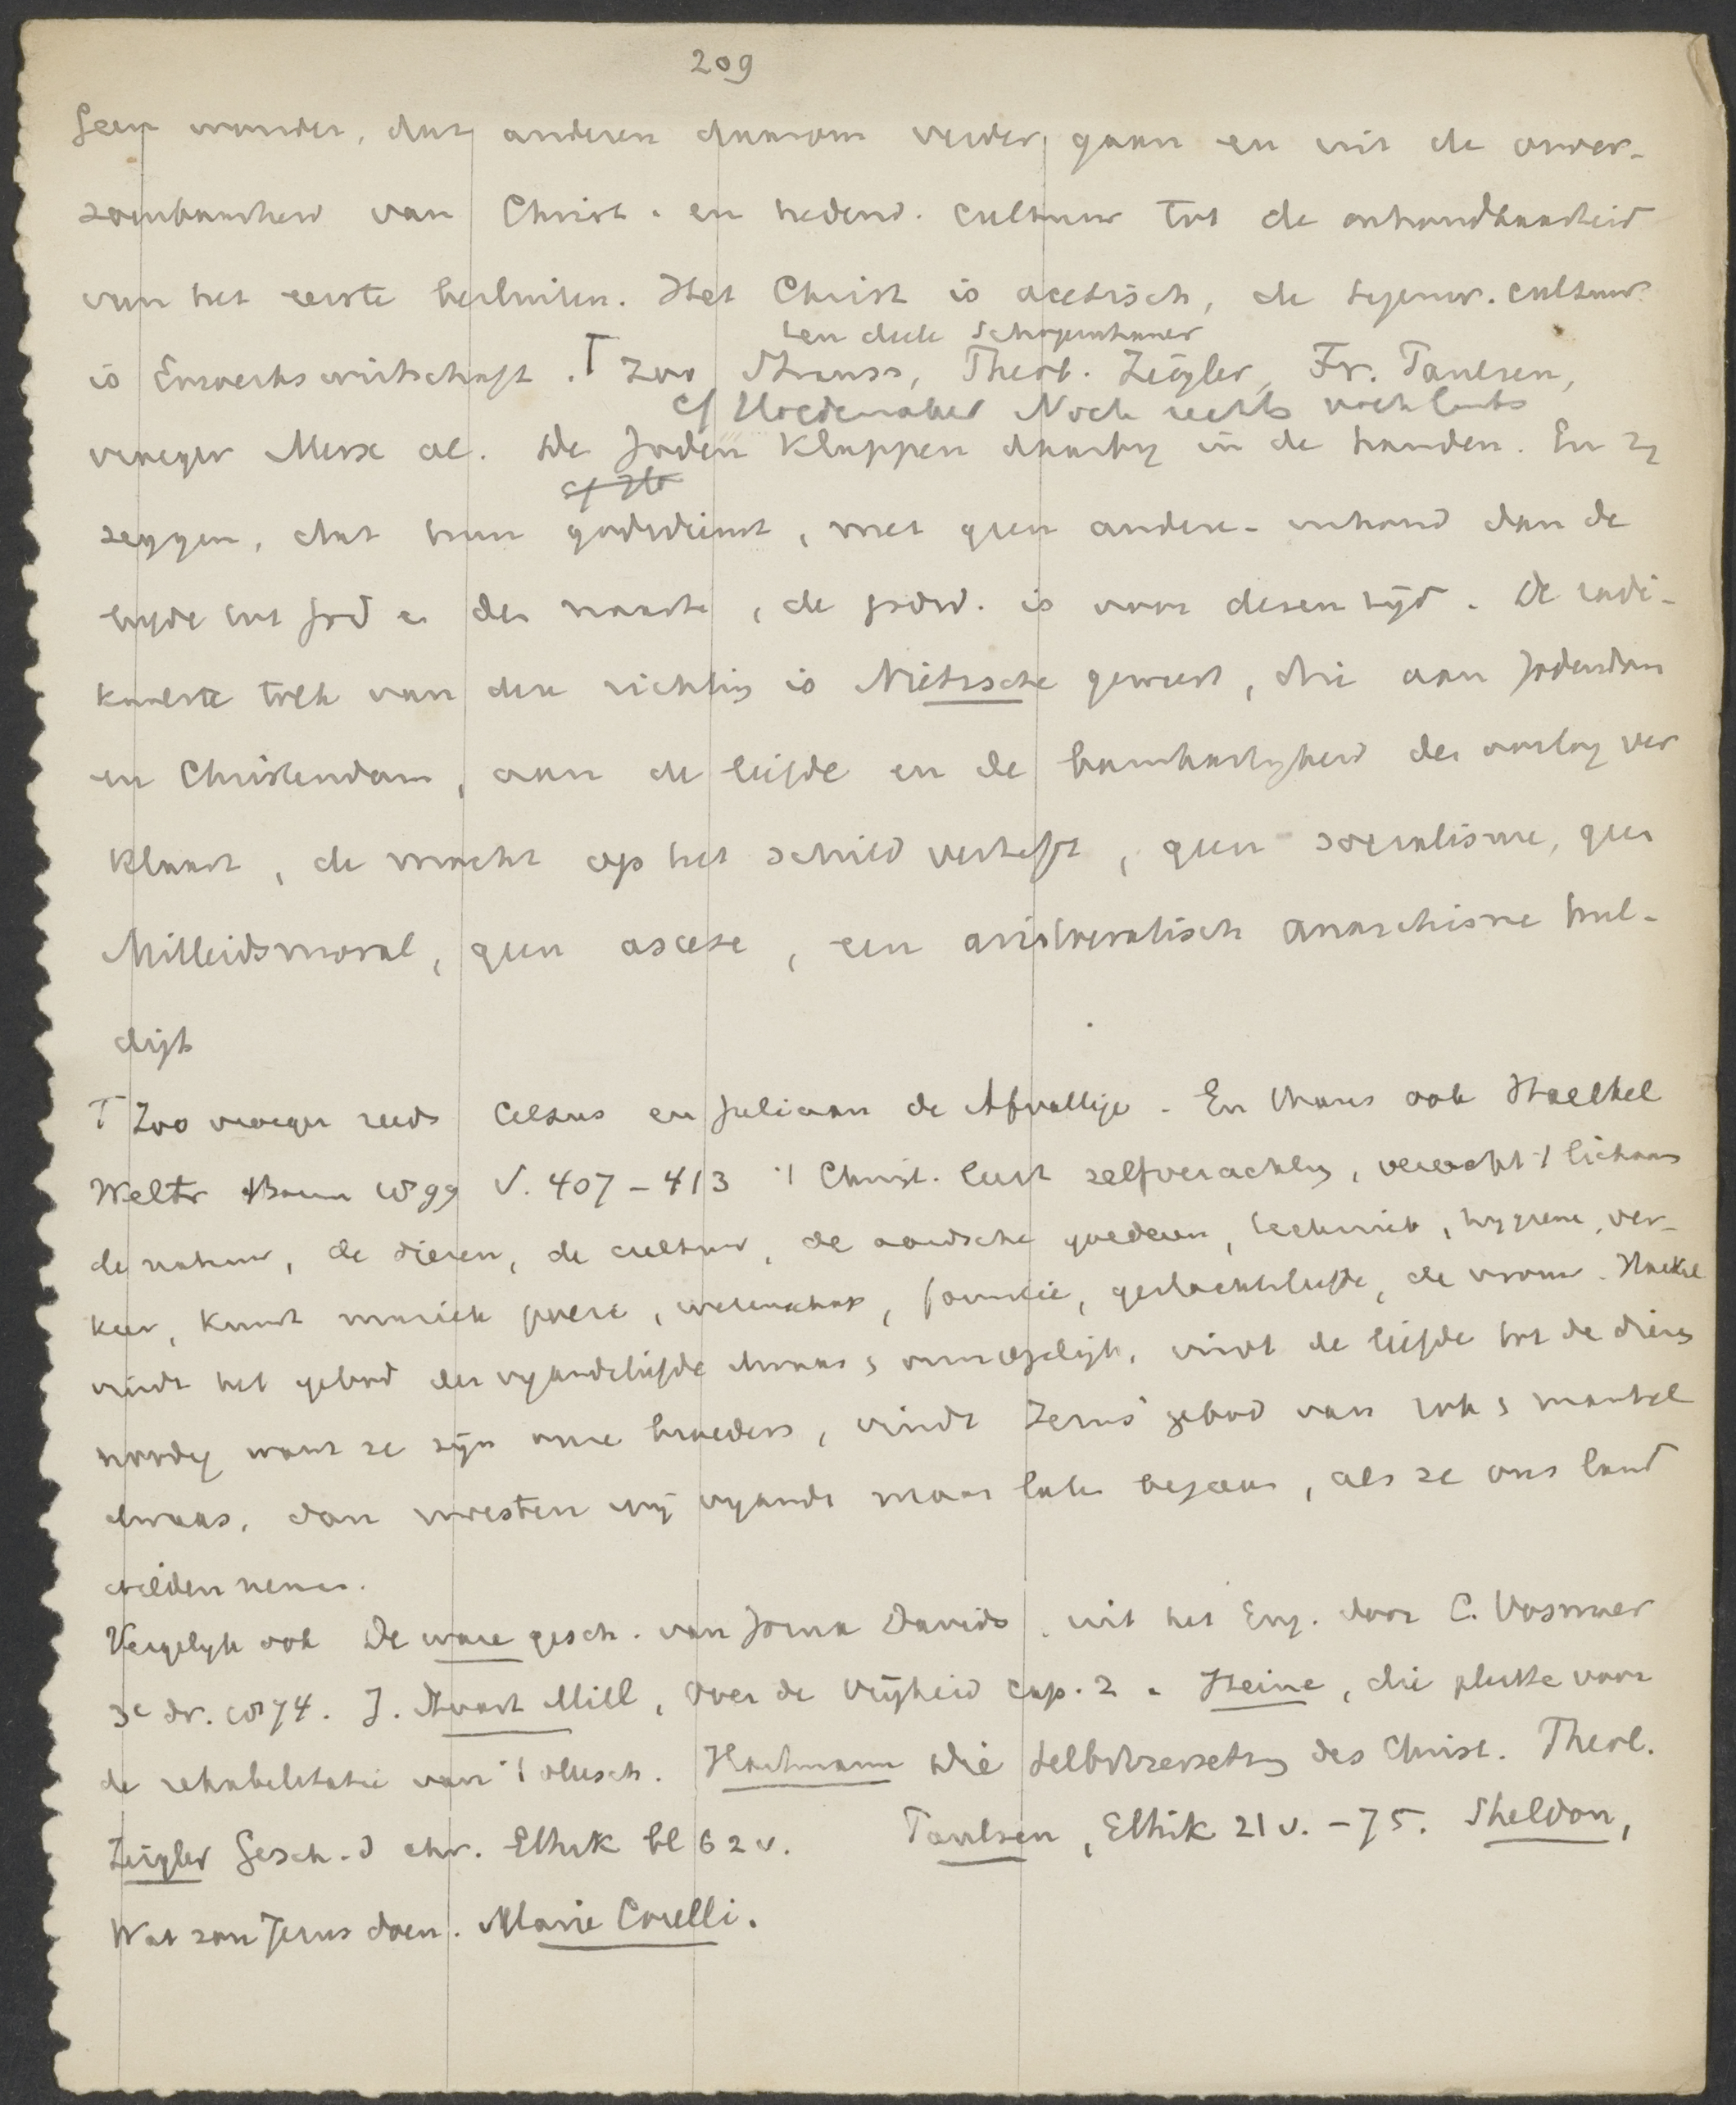 209
Geen wonder, dat anderen daarom verder gaan en uit de onver-
zoenbaarheid van Christ. en hedend. cultuur tot de onhoudbaarheid
van het eerste besluiten. Het Christ is acetisch, de tegenw. cultuur
ten deele Schopenhauer
is Erwerbswirtschaft. T Zoo Strauss, Theob. Ziegler, Fr. Paulsen,
cf Hoedemaker Noch rechts noch links
vroeger Merx al. De Joden klappen daarbij in de handen. En zij
cf
zeggen, dat hun godsdienst, met geen andere inhoud dan de
liefde tot God en den naaste, de godsd. is voor dezen tijd. De radi-
kaalste tolk van deze richting is Nietzsche geweest, die aan Jodendom
en Christendom, aan de liefde en de barmhartigheid den oorlog ver
klaart, de macht op het schild verheft, geen socialisme, geen
Mitleidsmoral, geen ascese, een aristocratisch anarchisme hul-
digt
T Zoo vroeger reeds Celsus en Juliaan de Afvallige. En thans ook Haeckel
Weltr Bonn 1899 S. 407-413 't Christ. leert zelfverachting, veracht 't lichaam
de natuur, de dieren, de cultuur, de aardsche goederen, techniek, hygiene, ver-
keer, kunst muziek poezie, wetenschap, familie, geslachtsliefde, de vrouw. Haeckel
vindt het gebod der vijandsliefde dwaas & onmogelijk, vindt de liefde tot de dieren
noodig want ze zijn onze broeders, vindt Jezus' gebod van rok & mantel
dwaas, dan moesten wij vijands maar laten begaan, als ze ons land
wilden nemen.
Vergelijk ook De ware gesch. van Josua Davids, uit het Eng. door C. Vosmaer
3e dr. 1874. J. Stuart Mill, Over de Vrijheid cap. 2. Heine, die pleitte voor
de rehabilitatie van 't vleesch. Hartmann Die Selbstzersetzung des Christ. Theol.
Ziegler Gesch. d chr. Ethik bl 62 v. Paulsen, Ethik 21 v. - 75. Sheldon,
Wat zou Jezus doen. Marie Corelli.